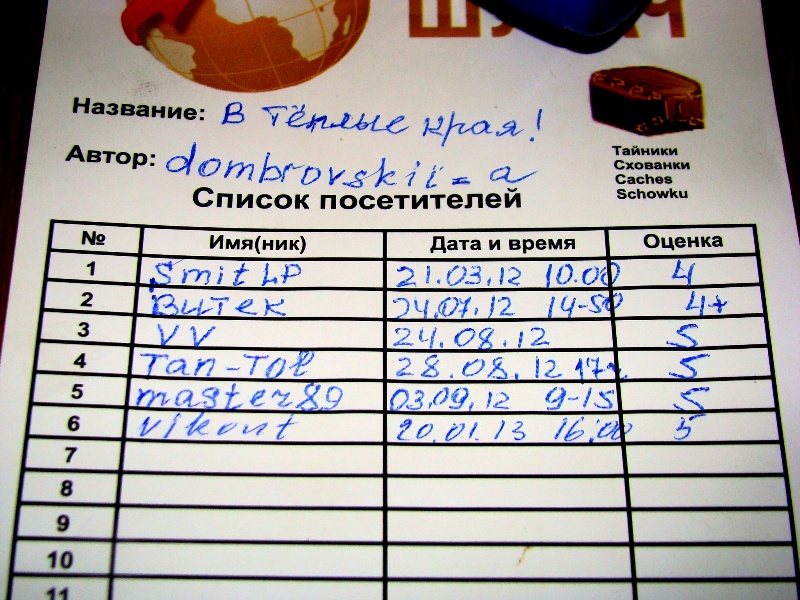 Название: В тёплые края!
Автор: dombrovskii-a
Тайники
Схованки
Caches
Schowku
Список посетителей
№ Имя(ник) Дата и время Оценка
1 Smit LP 21.03.12 10.00 4
2 Витек 24.07.12 14-50 4+
3 VV 24.08.12 5
4 Tan-Tol 28.08.12 5
5 master89 03.09.12 9-15 5
6 vikont 20.01.13 16:00 5
7
8
9
10
11